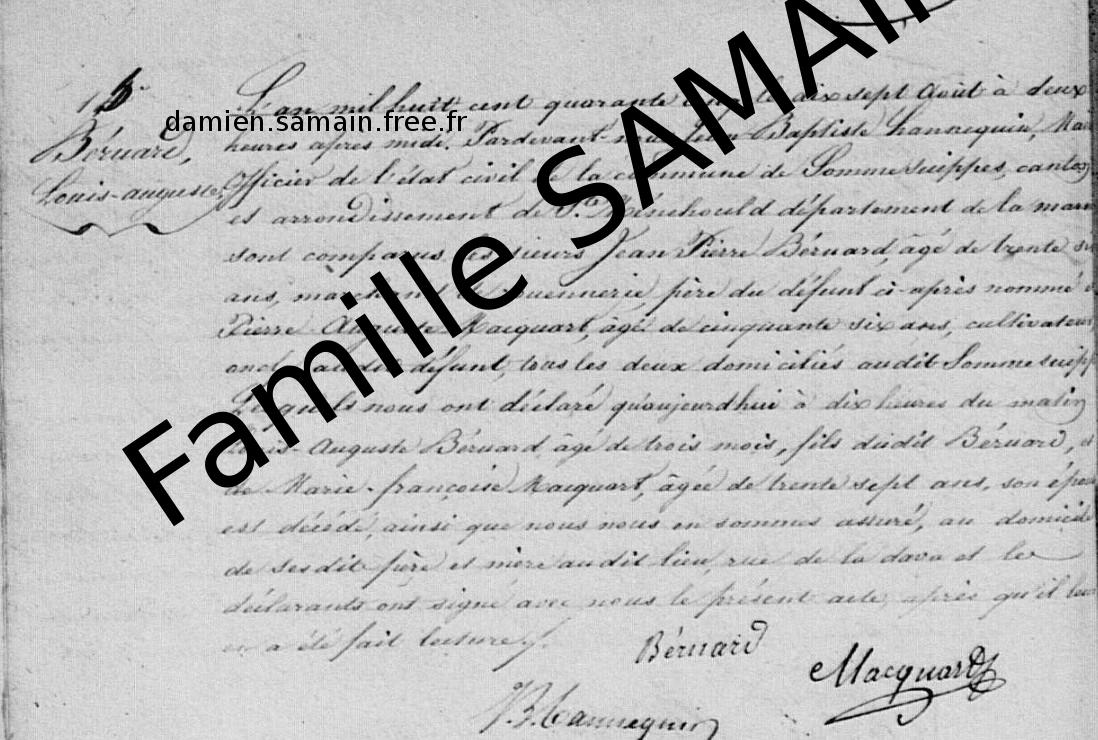 15
Bérnard,
Louis-auguste
L'an mil huit cent quarante le dix sept Août à deux
heures après midi. Pardevant nous Jean-Baptiste hannequin, Mai
officier de l'état civil de la commune de Sommesuippes, canton
et arrondissement de Ste Ménéhould département de la marn
sont comparus les sieurs Jean Pierre Bérnard, âgé de trente
ans, marchand de père du défunt ci-après nommé
Pierre-Auguste Macquart, âgé de cinquante six ans, cultivateur,
oncle audit défunt, tous les deux domiciliés audit Sommesuipp
Lesquels nous ont déclaré qu'aujourd'hui à dix heures du matin
Louis-Auguste Bérnard âgé de trois mois, fils dudit Bérnard, et
de Marie-françoise Macquart, âgée de trente sept ans, son épou
est décédé, ainsi que nous nous en sommes assuré, au domicile
de sesdits père et mère audit lieu, rue de la dava et les
déclarants ont signé avec nous le présent acte, après qu'il leur
en a été fait lecture./.
Bérnard
Macquart
JB. hannequin
damien.samain.free.fr
Famille SAMAI